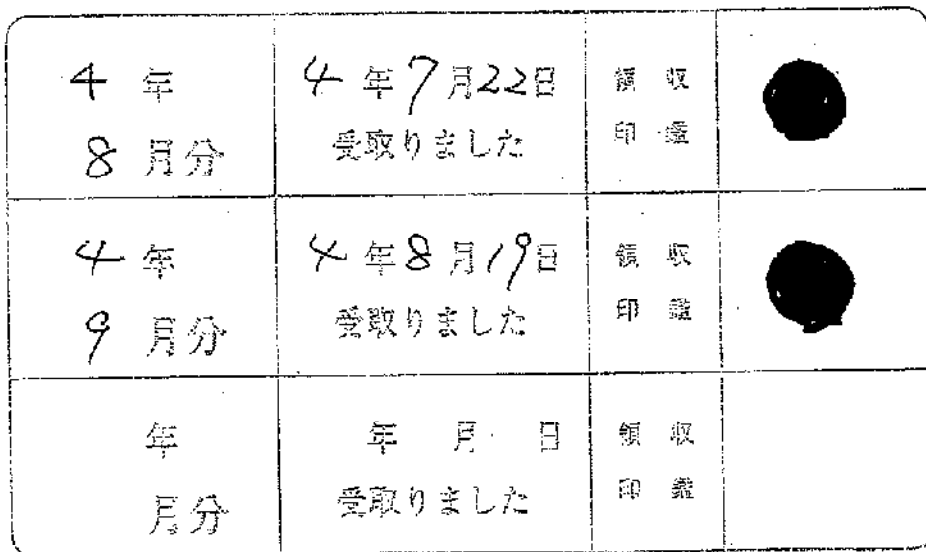 4年
8月分
4年7月22日
受取りました
領収
印鑑
4年
9月分
4年8月19日
受取りました
領収
印鑑
年
月分
年 月 日
受取りました
領収
印鑑